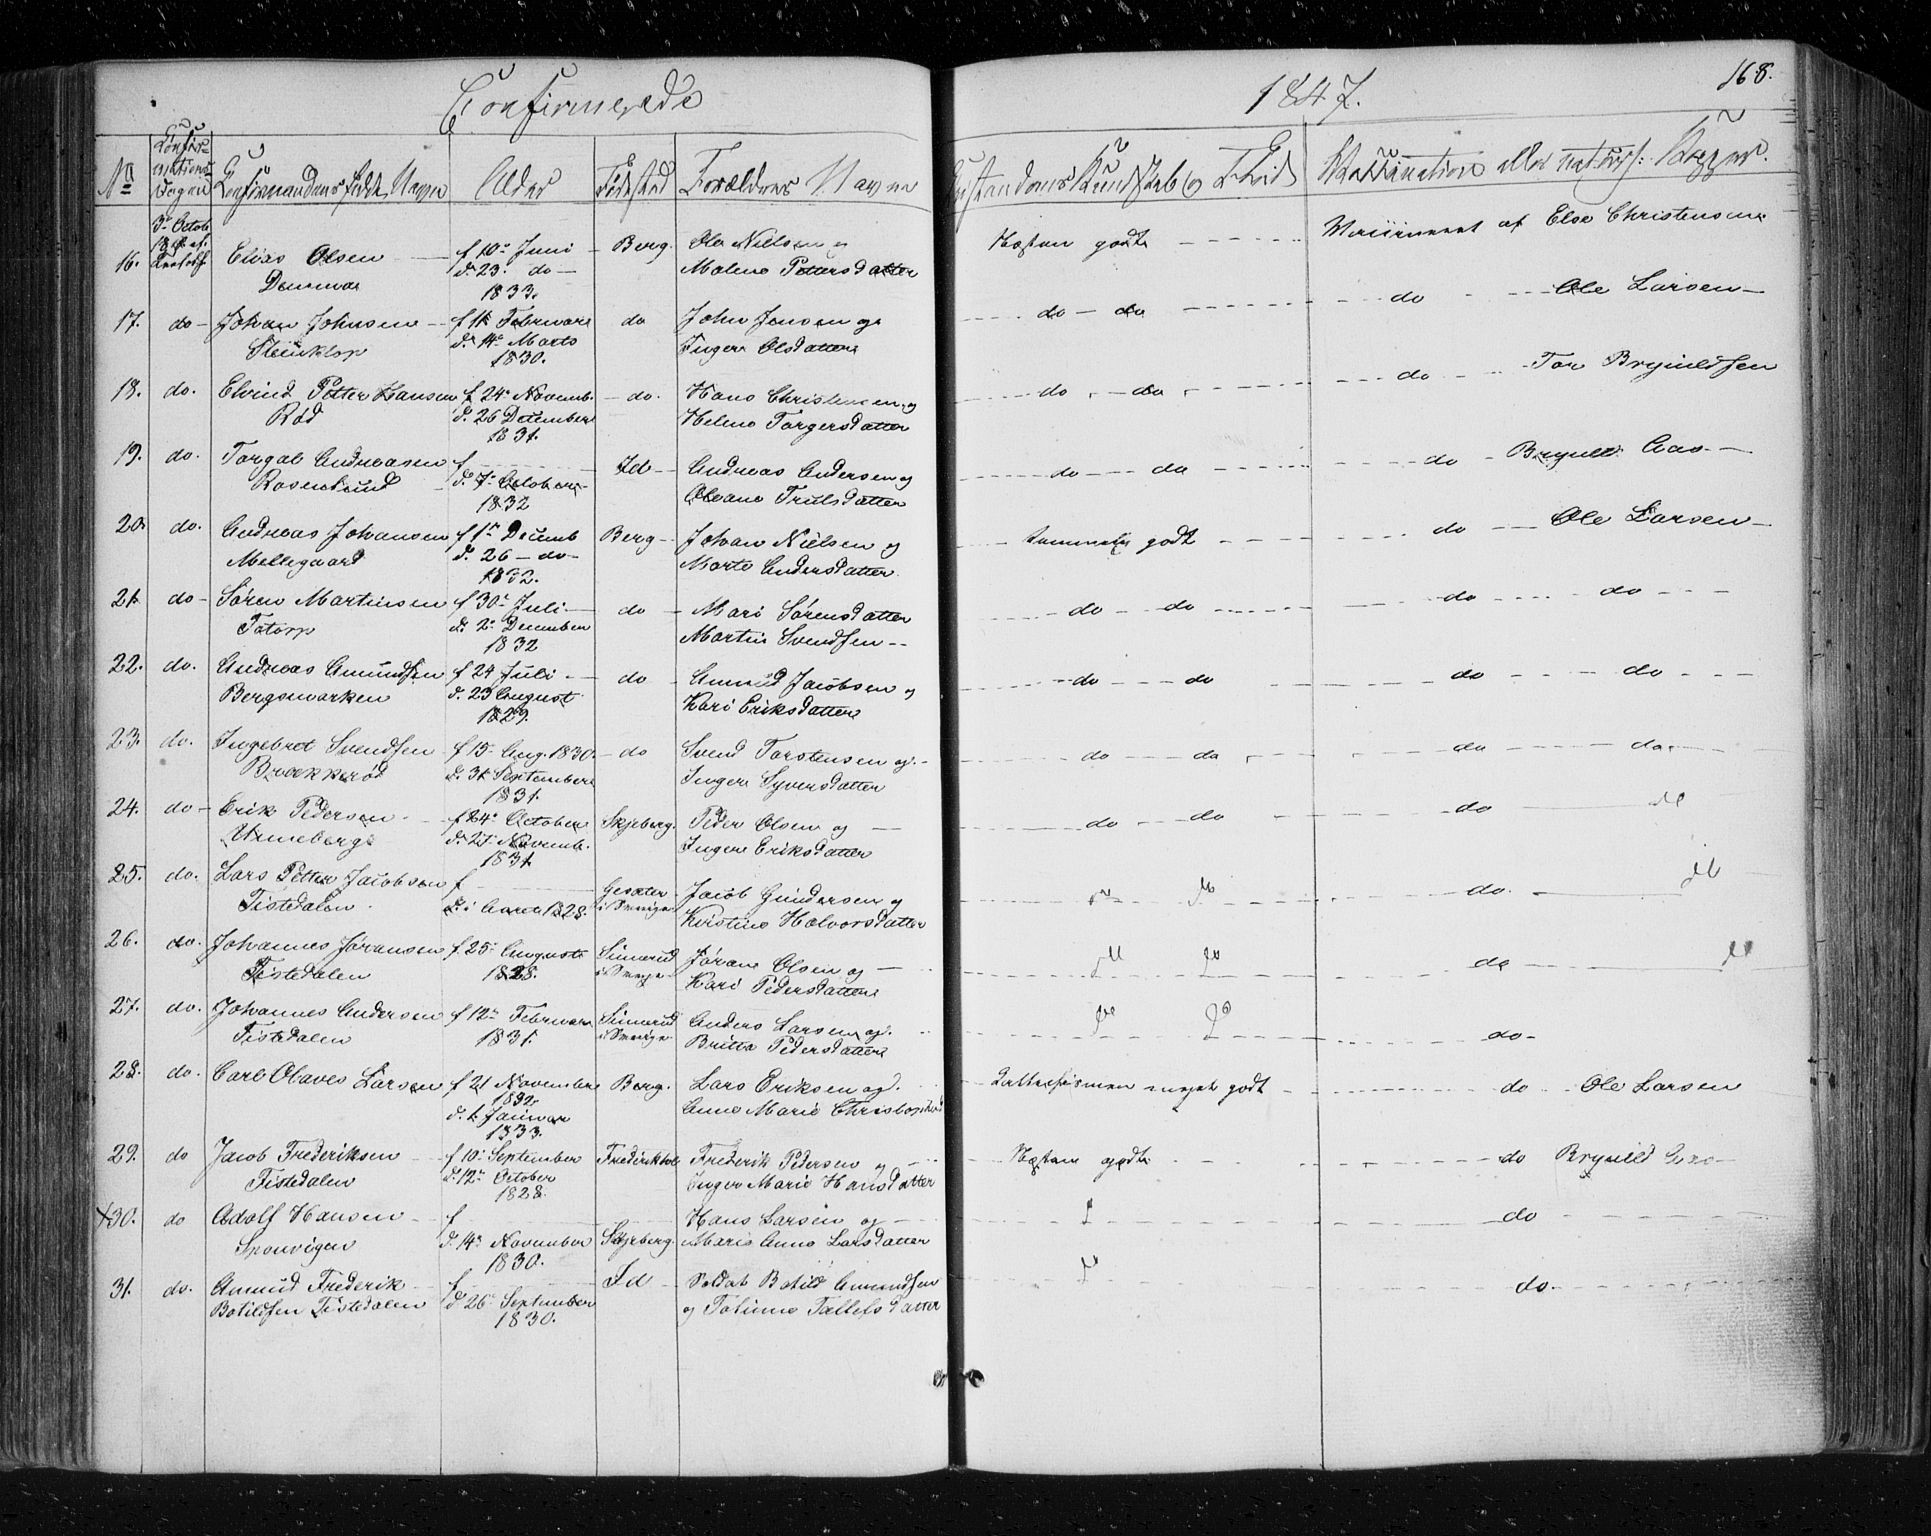 Confirmerede
1847.
168.
No
Confirmations Dagen
Confirmandens fulde Navn
Alder
Fødested
Forældres Navne
Kundskab og Flid
Vaccination eller naturl: Kopper.
3die Octob
16. Elias Olsen f 10de Juni Berg. Ole Nielsen og Næsten godt Vaccineret af Else Christensen
d. 23. do Malene Pettersdatter
1833.
17. do Johan Johnsen f 11te Februar do John Jensen og do do do Ole Larsen
d. 14de Marts Inger Olsdatter
1830.
18. do. Elvind Petter Hansen f 24de Novemb. do. Hans Christensen og do do do Tor Brynildsen
Rød d. 26 December Helene Torgersdatter
1831.
19. do. Torgal Andreasen f Id Andreas Andersen og do do do Brynild Aas
Rosenlund d. 7de October Oleane Trulsdatter
1832
20. do. Andreas Johansen f 1ste Decemb Berg Johan Nielsen og temmelig godt do Ole Larsen
Mellegaard d. 26 do Marte Andersdatter
1832.
21. do Søren Martinsen f 30te Juli do Mari Sørensdatter do do do do
Tatorp d. 2den December Martin Svendsen
1832
22. do. Andreas Amundsen f 24 Juli do Amund Jacobsen og do do do do
Bergsmarken d. 23 August Kari Eriksdatter
1829.
23. do. Ingebret Svendsen f 15de Aug. 1830. do Svend Torstensen og do do do do
Brækkerød d. 31 September Inger Syversdatter
1831.
24. do Erik Pedersen f 24de October Skjeberg. Peder Olsen og do do do do
Unneberg d. 27de Novemb. Inger Eriksdatter
1831.
25. do. Lars Petter Jacobsen f Gesæter Jacob Gundersen og do do do do
Tistedalen. d. i Aaret 1828. i Sverige Kirstine Halvorsdatter
26. do. Johannes Jøransen f 25de August Jøran Olsen og do do do do
Tistedalen 1828. i Sverige Kari Pedersdatter
27. do. Johannes Andersen f 12te Februar Anders Larsen og do do do
Tistedalen 1831. i Sverige Britta Pedersdatter
28. do. Carl Olaves Larsen f 21 November Berg. Lars Eriksen og meget godt do Ole Larsen
1832.
d. 1. Januar Anne Marie
1833.
29. do Jacob Frederiksen f 10de September Frederiksh Frederik Pedersen og Næsten godt do Brynild Aas
Tistedalen d. 12te October Inger Marie Hansdatter
1828.
30. do Adolf Hansen f Hans Larsen og do do
Sponvigen d. 14de November Skjeberg. Maria Anne Larsdatter
1830.
31. do. Amund Frederik f Id Soldat Botild Amundsen do do.
Botildsen Tistedalen d 26de September og Tollefsdatter
1830.